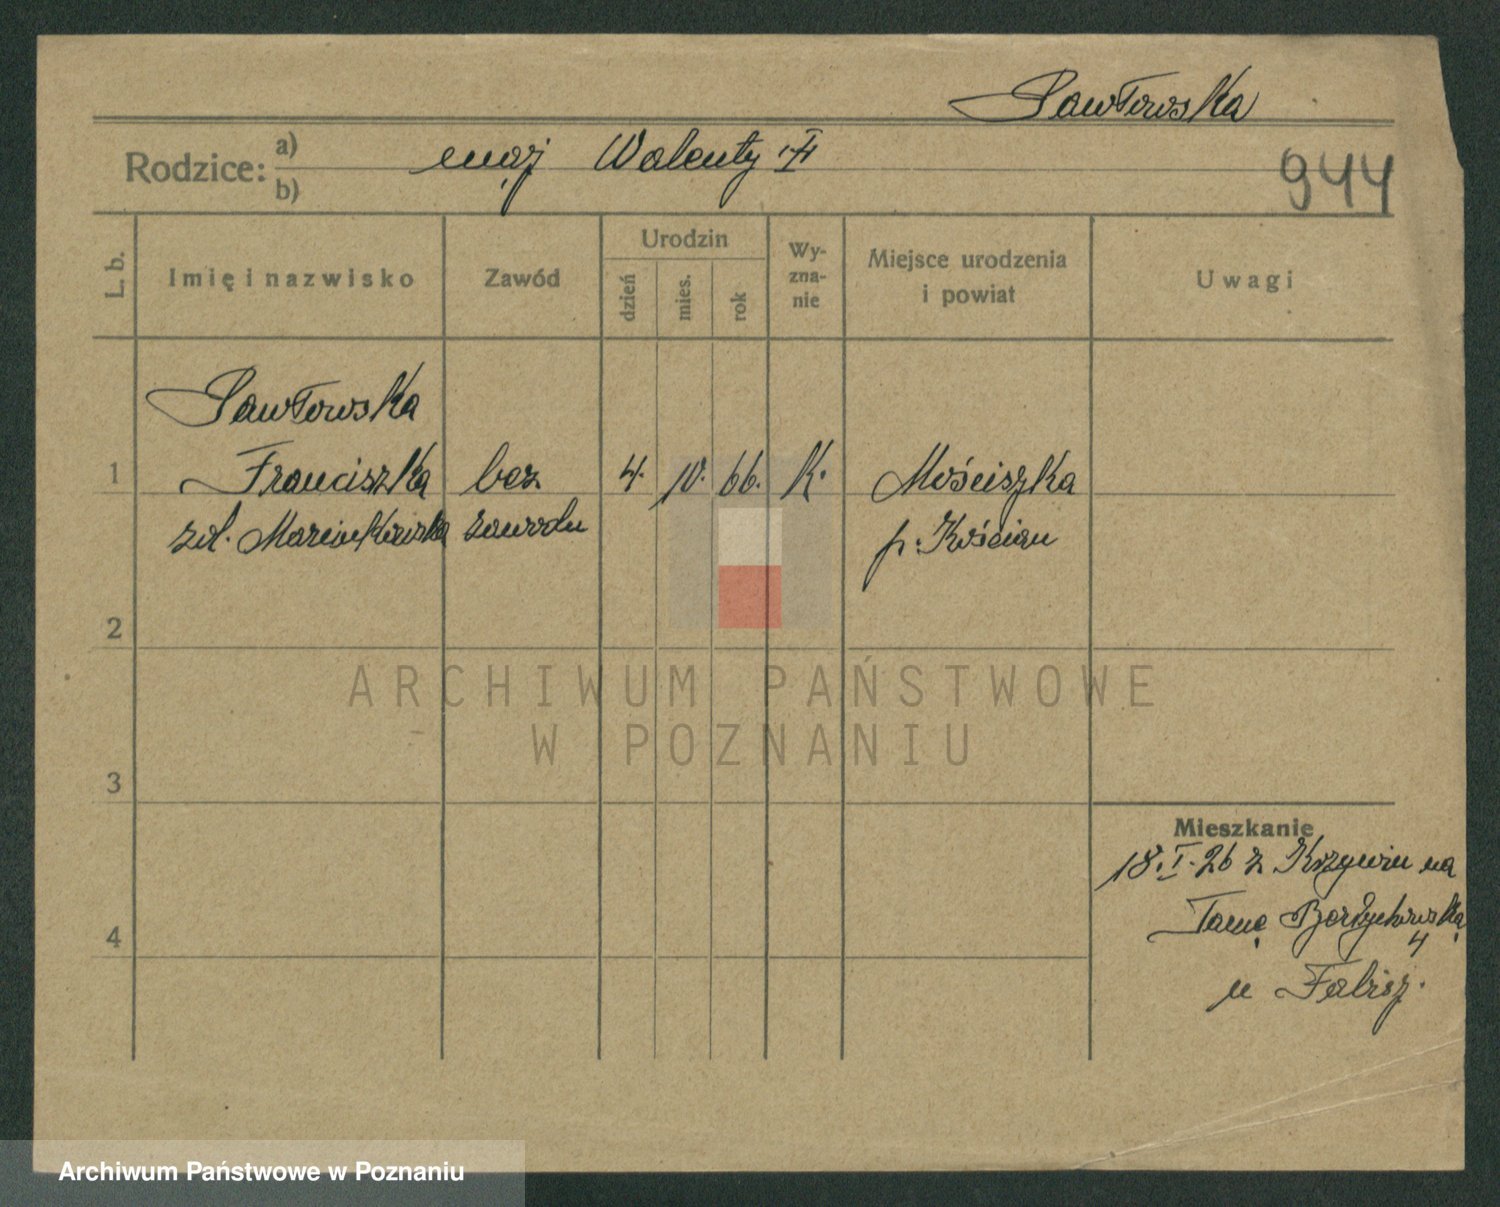 Pawłowska
Rodzice: a) b)
mąż Walenty †
944
L. b.
Imię i nazwisko
Zawód
Urodzin
dzień
mies.
rok
Wy-
zna-
nie
Miejsce urodzenia
i powiat
Uwagi
Pawłowska
1 Franciszka bez 4. 10. 66. K. Mościszka
zd. Marcinkowska zawodu p. Kościan
2
3
4
Mieszkanie
18. I. 26 z Krzywiń na
Tamę 4
u Fabisz.
ARCHIWUM PAŃSTWOWE
W POZNANIU
Archiwum Państwowe w Poznaniu